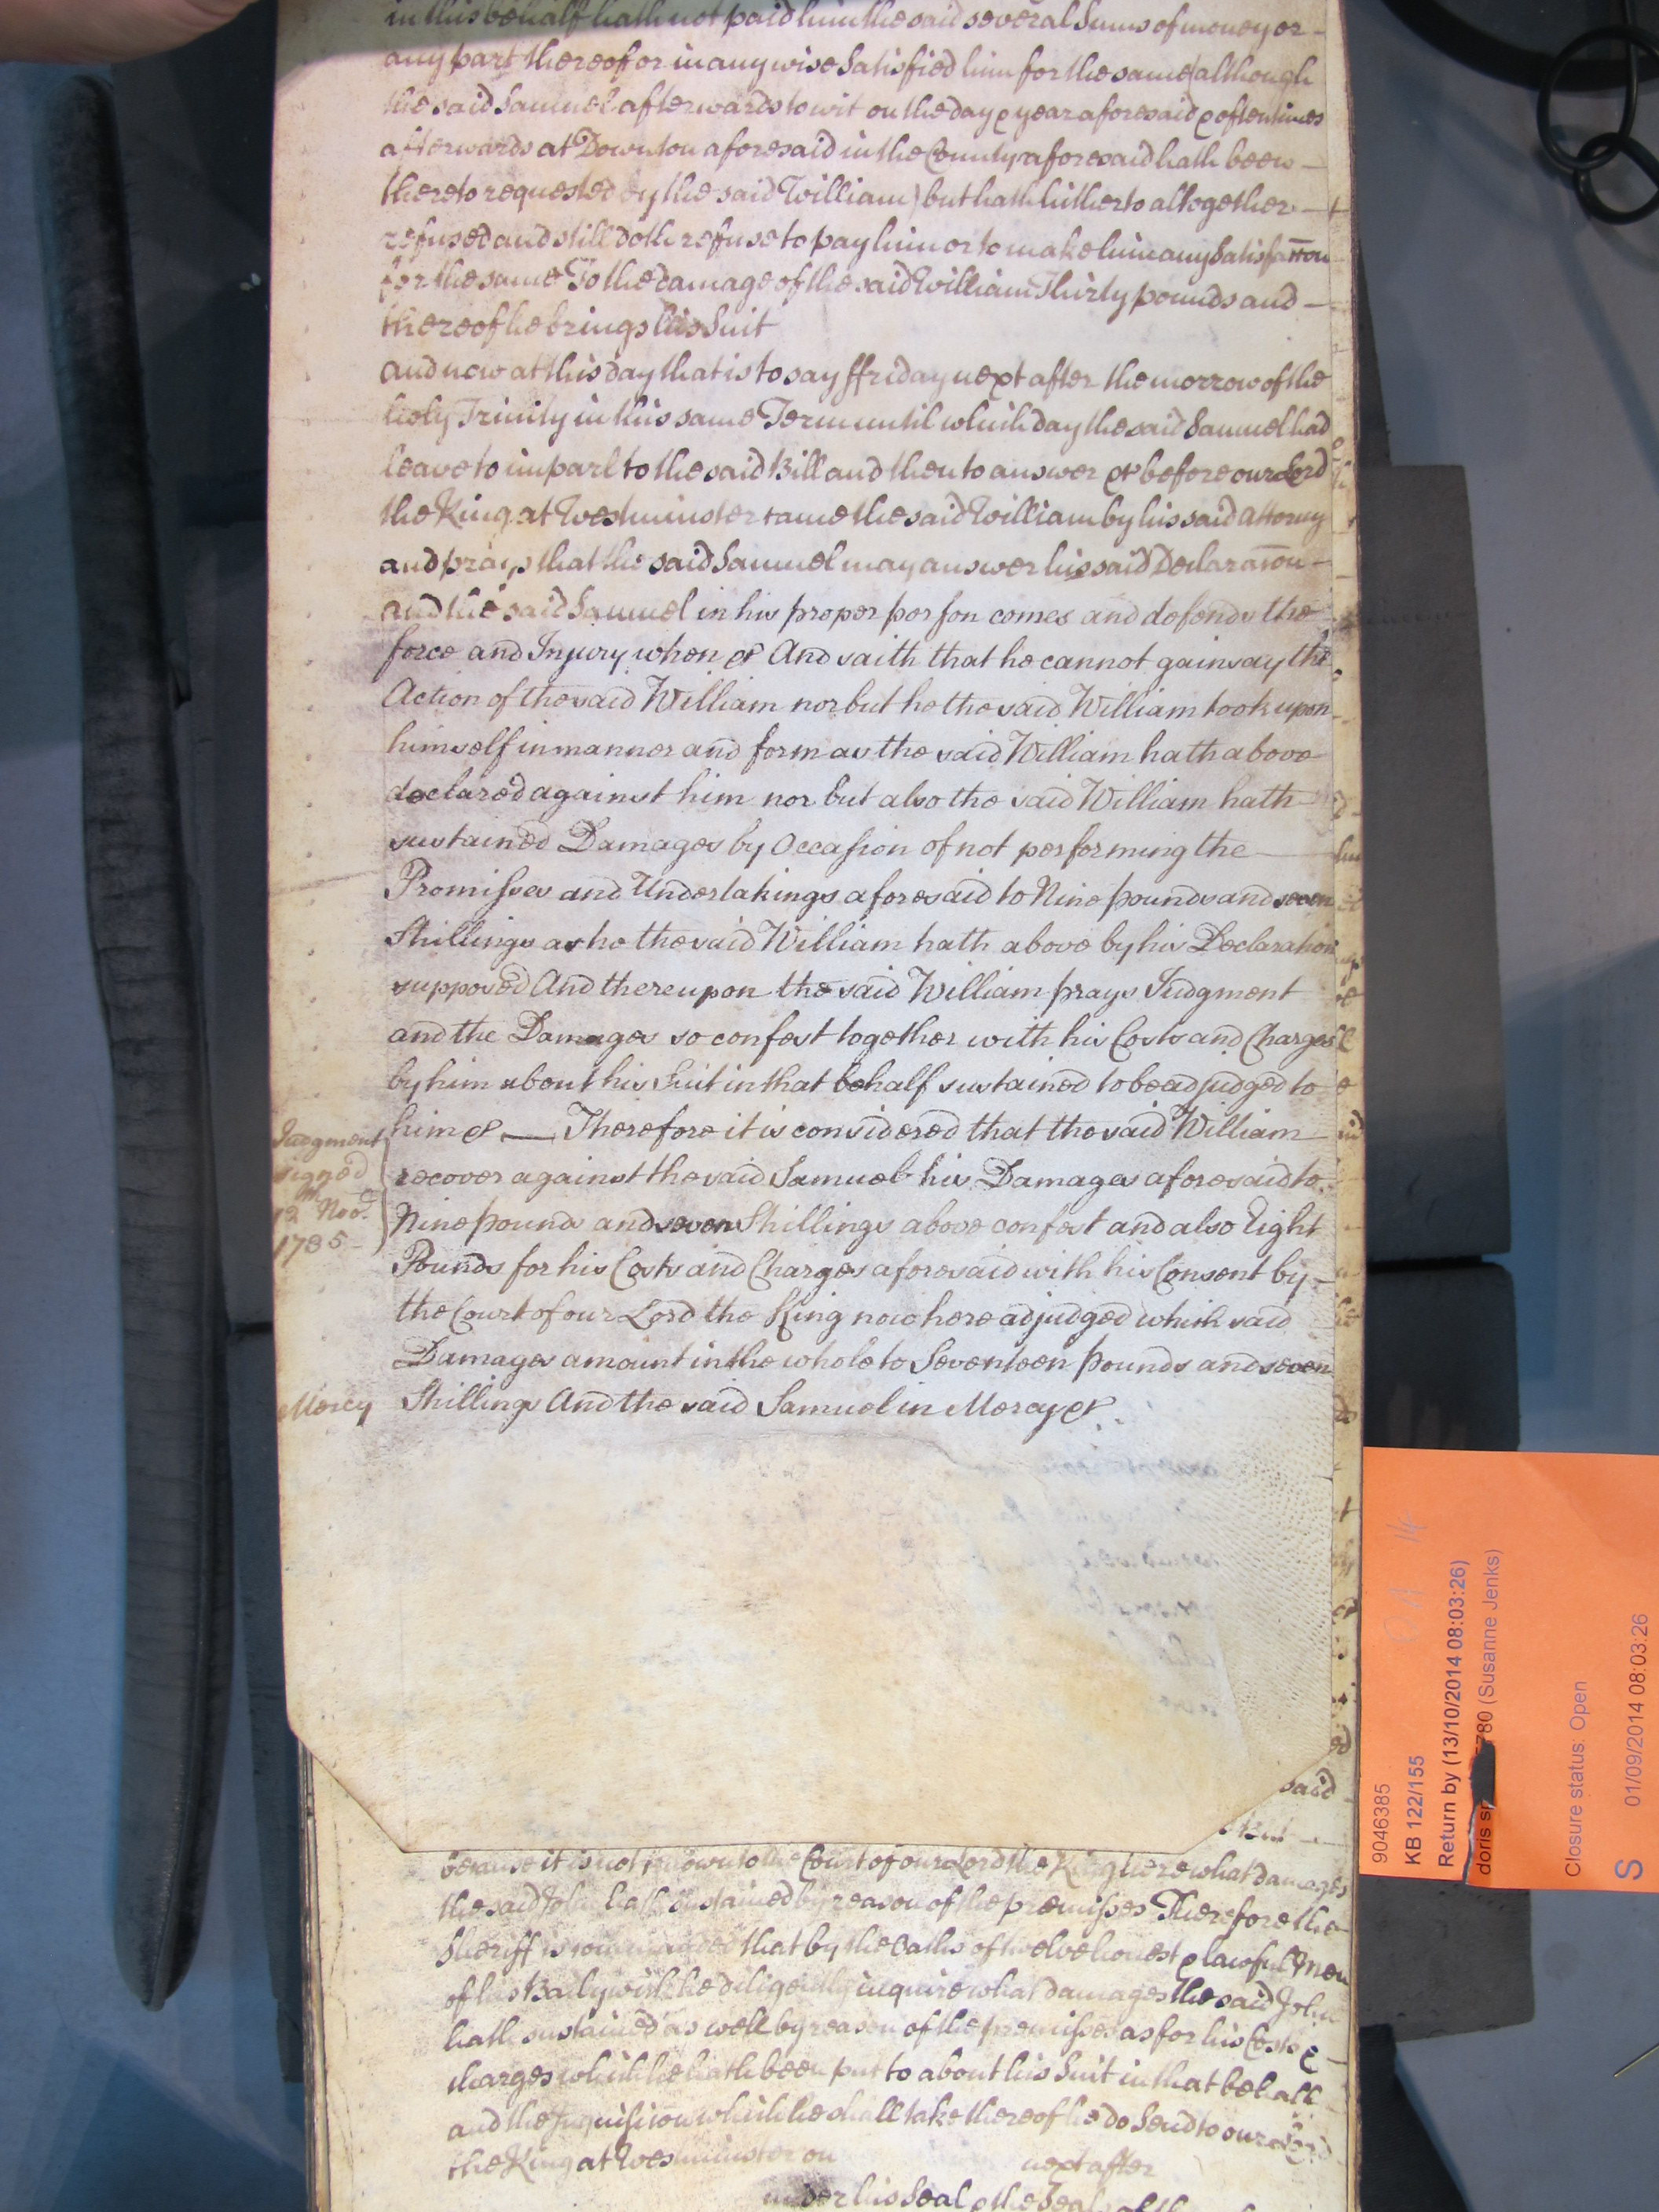 in this behalf hath not paid him the said several Sums of money or
any part thereof or in any wise Satisfied him for the same (although
the said Samuel afterwards to wit on the day & year aforesaid & oftentimes
afterwards at Downton aforesaid in the County aforesaid hath been
thereto requested by the said William) but hath hitherto altogether
refused and still doth refuse to pay him or to make him any Satisfaccon
for the same To the damage of the said William Thirty pounds and
thereof he brings his Suit
And now at this day that is to say ffriday next after the morrow of the
holy Trinity in this same Term until which day the said Samuel had
leave to imparl to the said Bill and then to answer &c before our Lord
the King at Westminster came the said William by his said attorny
and prays that the said Samuel may answer his said Declaracon
And the said Samuel in his proper person comes and defends the
force and Injury when &c And saith that he cannot gainsay the
Action of the said William nor but he the said William took upon
himself in manner and form as the said William hath above
declared against him nor but also the said William hath
sustained Damages by Occasion of not performing the
Promisses and Undertakings aforesaid to Nine pounds and seven
Shillings as he the said William hath above by his Declaration
supposed And thereupon the said William prays Judgment
and the Damages so confest together with his Costs and Charges
by him about his Suit in that behalf sustained to be adjudged to
him &c Therefore it is considered that the said William
Judgment
signed
12th Nov.
1735
recover against the said Samuel his Damages aforesaid to
Nine pounds and seven Shillings above confest and also Eight
Pounds for his Costs and Charges aforesaid with his Consent by
the Court of our Lord the King now here adjudged which said
Damages amount in the whole to Seventeen pounds and seven
Mercy
Shillings And the said Samuel in Mercy &c
said
because it is not known to the Court of our Lord the King here what damages
the said John hath sustained by reason of the premisses Therefore the
Sheriff is commanded that by the Oaths of twelve honest & lawful Men
of his Bailywick he diligently inquire what damages the said John
hath sustained as well by reason of the premisses as for his Costs &
charges which he hath been put to about his Suit in that behalf
and the Inquisicon which he shall take thereof he do Send to our Lord
the King at Westminster on next after
under his Seal & the Seals of the
9046385
KB 122/155
Return by (13/10/2014 08:03:26)
780 (Susanne Jenks)
Closure status: Open
S 01/09/2014 08:03:26